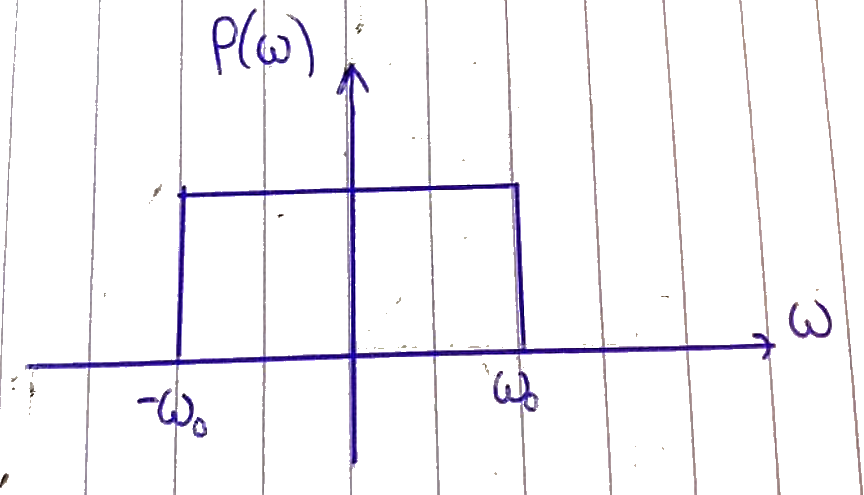 P(ω)
ω
-ω₀
ω₀